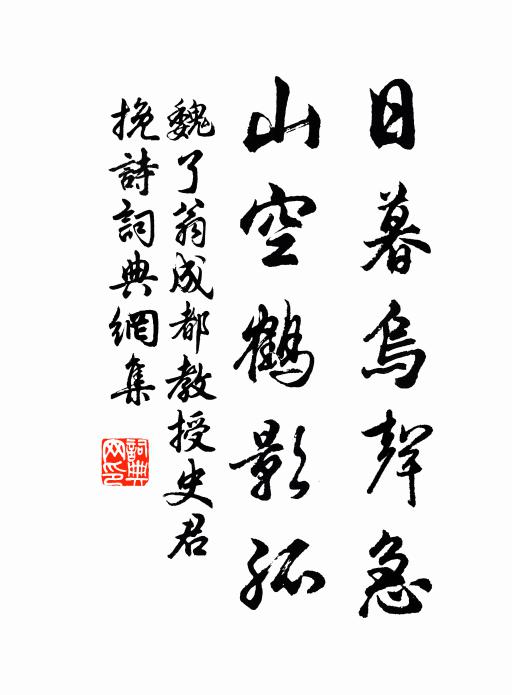 日暮烏聲急
山空鶴影孤
魏了翁成都教授史君
挽詩詞典網集
詞典
网印